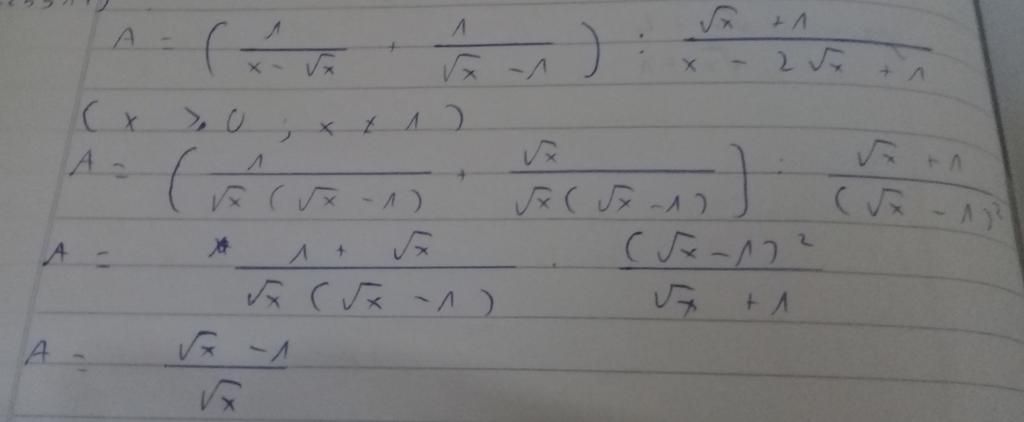 A = ( 1 / (x - √x) + 1 / (√x - 1) ) : (√x + 1) / (x - 2√x + 1)
( x ≥ 0 ; x ≠ 1 )
A = ( 1 / (√x (√x - 1)) + √x / (√x (√x - 1)) ) : (√x + 1) / (√x - 1)²
A = (1 + √x) / (√x (√x - 1)) . (√x - 1)² / (√x + 1)
A = (√x - 1) / √x